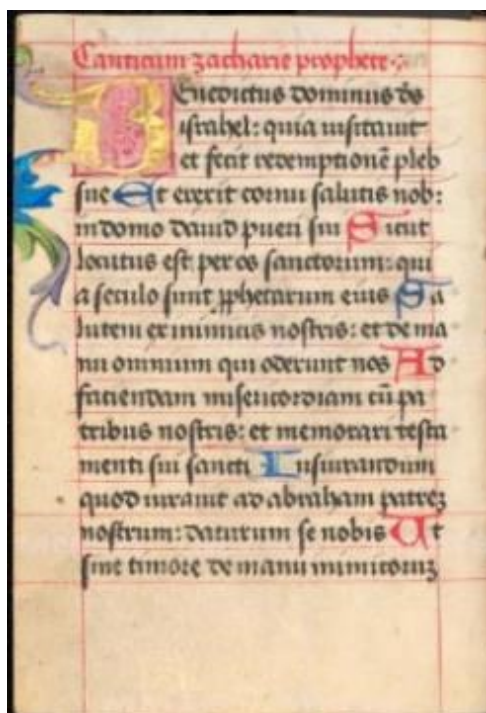 Canticum zacharie prophete
Benedictus dominus ds̄
israhel: quia visitauit
et fecit redemptionē pleb
sue Et erexit cornu salutis nob:
in domo dauid pueri sui Sicut
locutus est per os sanctorum: qui
a seculo sunt ꝓphetarum eius Sa
lutem ex inimicis nostris: et de ma
nu omnium qui oderunt nos Ad
faciendam misericordiam cū pa
tribus nostris: et memorari testa
menti sui sancti Iusiurandum
quod iurauit ad abraham patreꝫ
nostrum: daturum se nobis Ut
sine timore de manu inimicoruꝫ